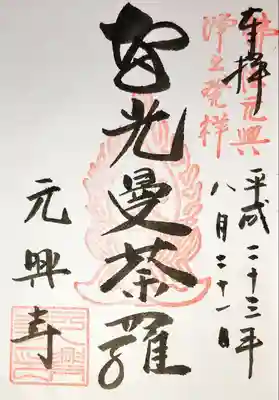 奉拝
佛法元興
浄土発祥
平成二十三年
八月二十一日
智光曼荼羅
元興寺